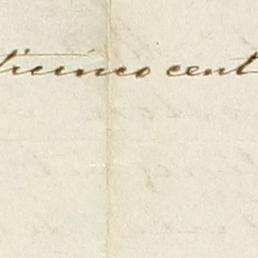 ticinco cent